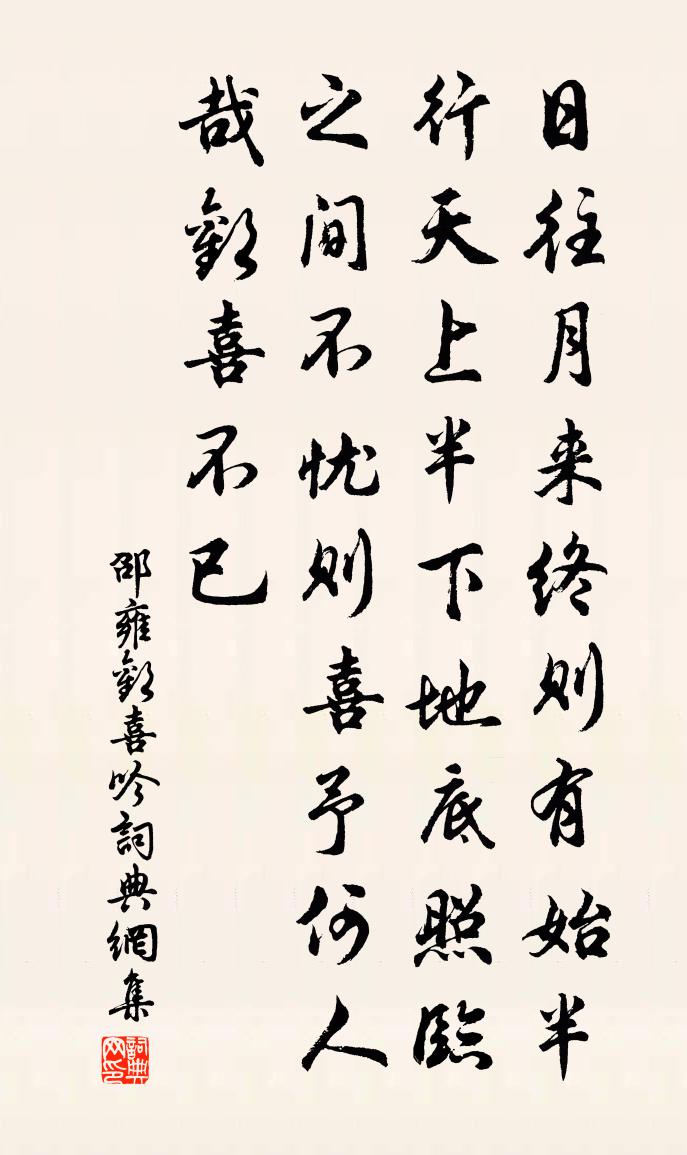 日往月来终则有始半
行天上半下地底照臨
之间不忧则喜予何人
哉歡喜不已
邵雍歡喜吟詞典網集
詞典网印